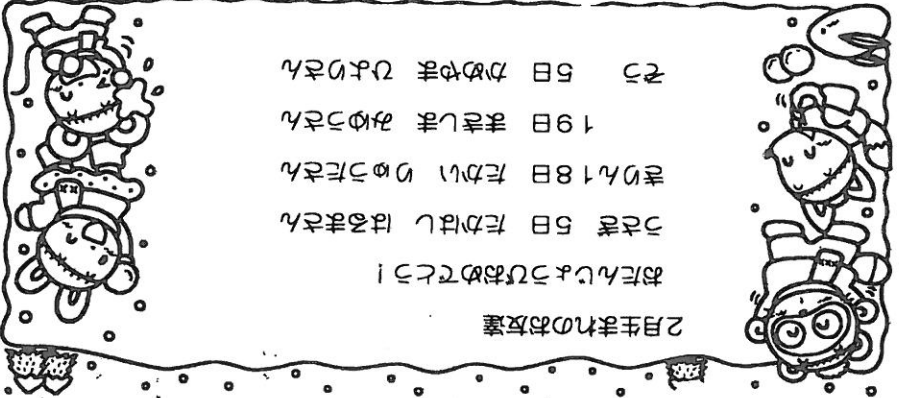 2月生まれのお友達
おたんじょうびおめでとう！
うさぎ 5日 たかはし はるまさん
きりん18日 たかい りゅうたさん
19日 まきしま みゆうさん
ぞう 5日 かめやま ひよりさん